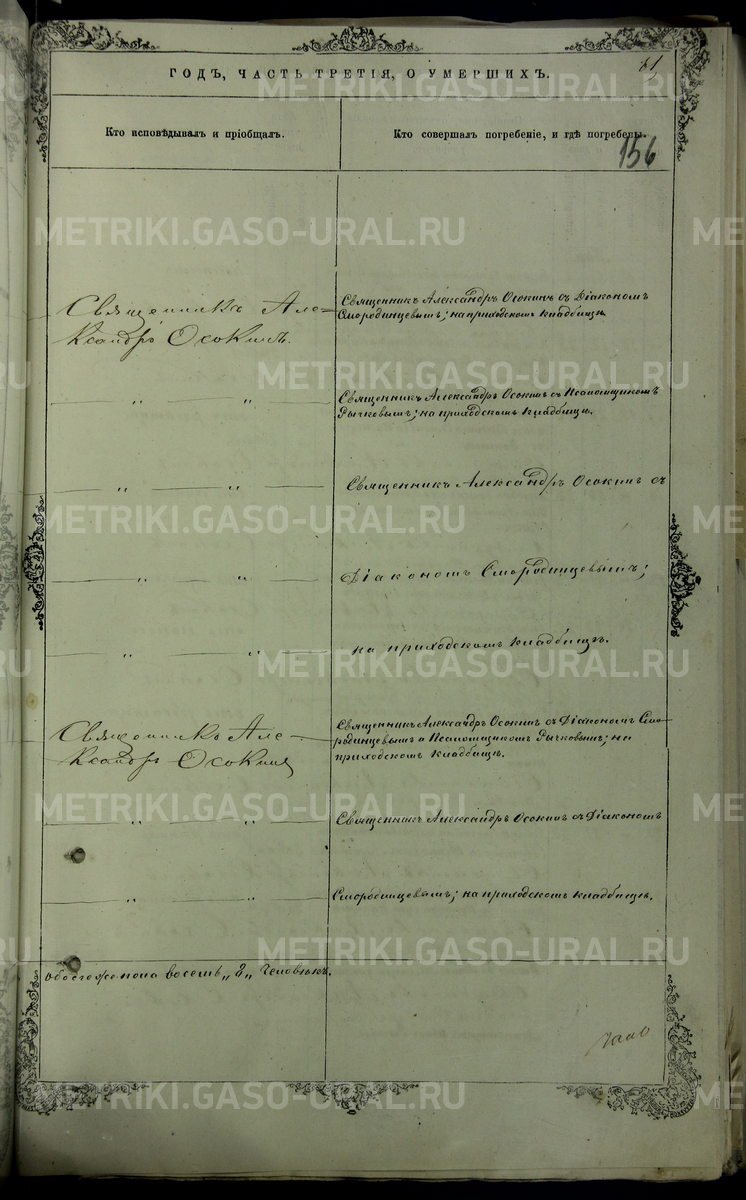 81
ГОДЪ, ЧАСТЬ ТРЕТІЯ, О УМЕРШИХЪ.
Кто исповѣдывалъ и пріобщалъ.
Кто совершалъ погребеніе, и гдѣ погребены.
156
Священникъ Але-
ксандръ Осокинъ.
Священникъ Александръ Осокинъ съ Діакономъ
Смородинцевымъ; на приходскомъ кладбищѣ.
„ „
Священникъ Александръ Осокинъ съ Псаломщикомъ
Рычковымъ; на приходскомъ кладбищѣ.
„ „
Священникъ Александръ Осокинъ съ
„ „
Діакономъ Смородинцевымъ;
„ „
на приходскомъ кладбищѣ.
Священникъ Але-
ксандръ Осокинъ
Священникъ Александръ Осокинъ съ Діакономъ Смо-
родинцевымъ и Псаломщикомъ Рычковымъ; на
приходскомъ кладбищѣ.
„ „
Священникъ Александръ Осокинъ съ Діакономъ
„ „
Смородинцевымъ; на приходскомъ кладбищѣ.
обоего же пола восемь „8„ человѣкъ.
METRIKI.GASO-URAL.RU